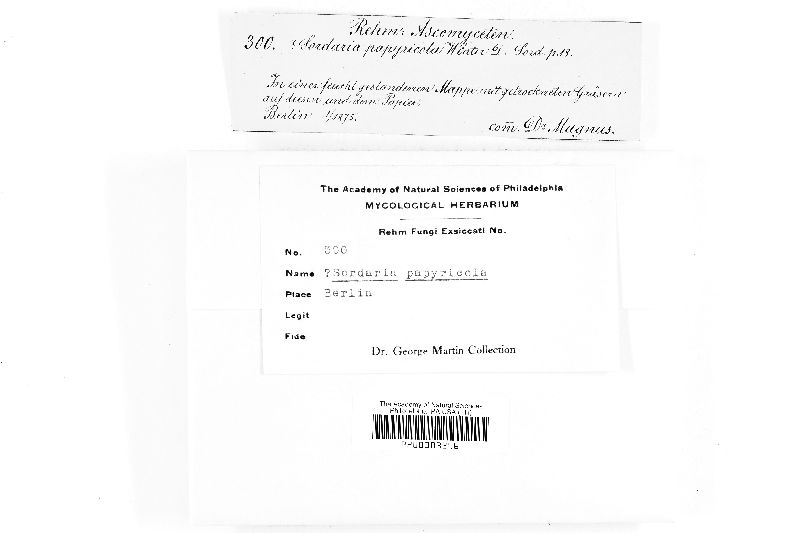 Rehm: Ascomyceten.
300. ? Sordaria papyricola Winter D. Sord. p. 18.
In einer feucht gestandenen Mappe mit getrockneten Gräsern
auf diesen und dem Papier.
Berlin 1/1875.
com̅. Dr. Magnus.
The Academy of Natural Sciences of Philadelphia
MYCOLOGICAL HERBARIUM
Rehm Fungi Exsiccati No.
No. 300
Name ?Sordaria papyricola
Place Berlin
Legit
Fide
Dr. George Martin Collection
The Academy of Natural Sciences